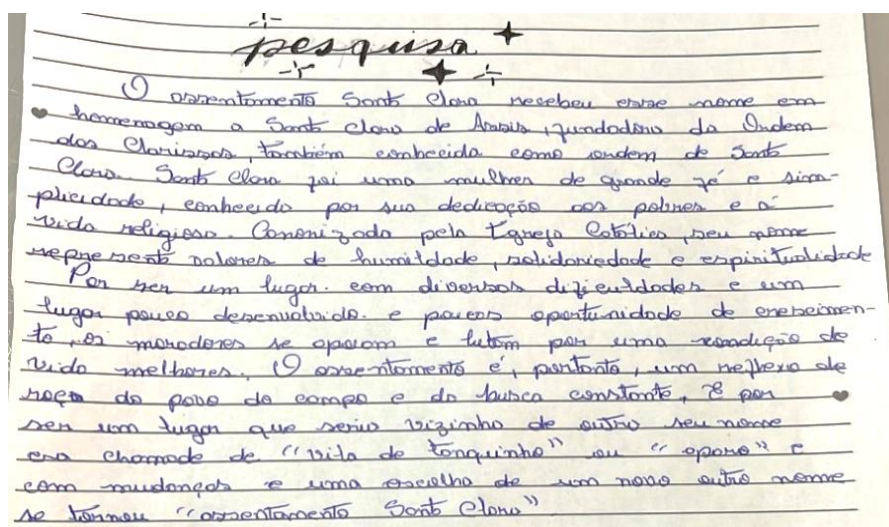 pesquisa
O assentamento Santa Clara recebeu esse nome em
homenagem a Santa Clara de Assis, fundadora da Ordem
das Clarissas, também conhecida como ordem de Santa
Clara. Santa Clara foi uma mulher de grande fé e sim-
plicidade, conhecida por sua dedicação aos pobres e a
vida religiosa. Canonizada pela Igreja Católica, seu nome
representa valores de humildade, solidariedade e espiritualidade
Por ser um lugar. com diversas dificuldades e um
lugar pouco desenvolvido. e poucas oportunidade de crescimen-
to, os moradores se apoiam e lutam por uma condição de
vida melhores. O assentamento é, portanto, um reflexo de
do povo do campo e da busca constante, E por
ser um lugar que seria vizinho de outro seu nome
era chamado de "vila de tonquinho" ou "oparo" e
com mudanças e uma escolha de um novo outro nome
se tornou "assentamento Santa Clara"